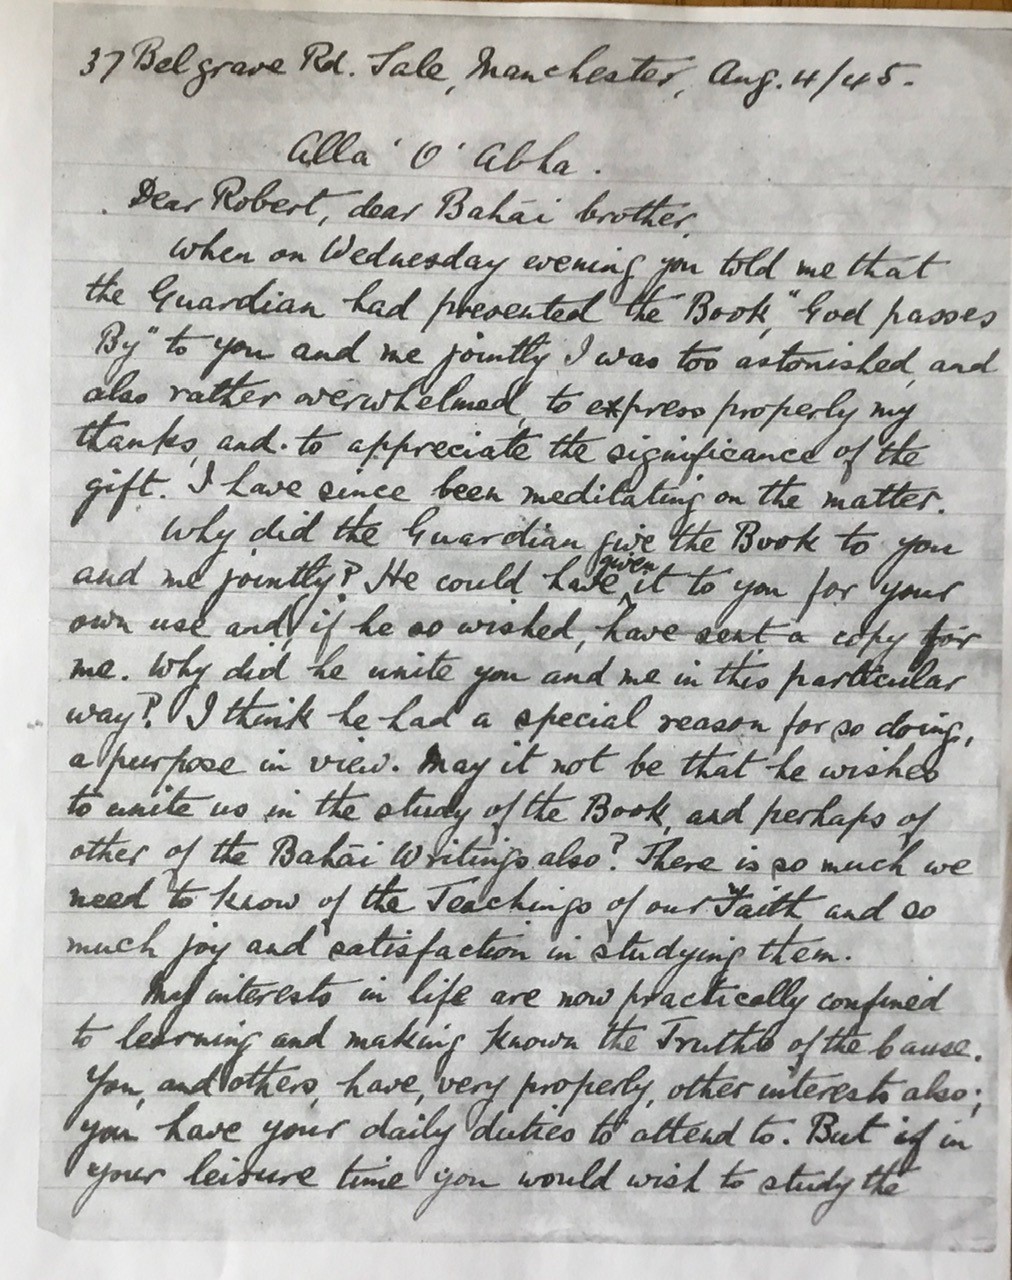 37 Belgrave Rd. Sale, Manchester, Aug. 4/45.
Alla' O' Abha.
Dear Robert, dear Bahāi brother,
When on Wednesday evening you told me that
the Guardian had presented the Book, "God passes
By" to you and me jointly I was too astonished, and
also rather overwhelmed, to express properly my
thanks, and to appreciate the significance of the
gift. I have since been meditating on the matter.
Why did the Guardian give the Book to you
and me jointly? He could have given it to you for your
own use and, if he so wished, have sent a copy for
me. Why did he unite you and me in this particular
way? I think he had a special reason for so doing,
a purpose in view. May it not be that he wishes
to unite us in the study of the Book, and perhaps of
other of the Bahāi Writings also? There is so much we
need to know of the Teachings of our Faith and so
much joy and satisfaction in studying them.
My interests in life are now practically confined
to learning and making known the Truths of the Cause.
You, and others, have, very properly, other interests also;
you have your daily duties to attend to. But if in
your leisure time you would wish to study the